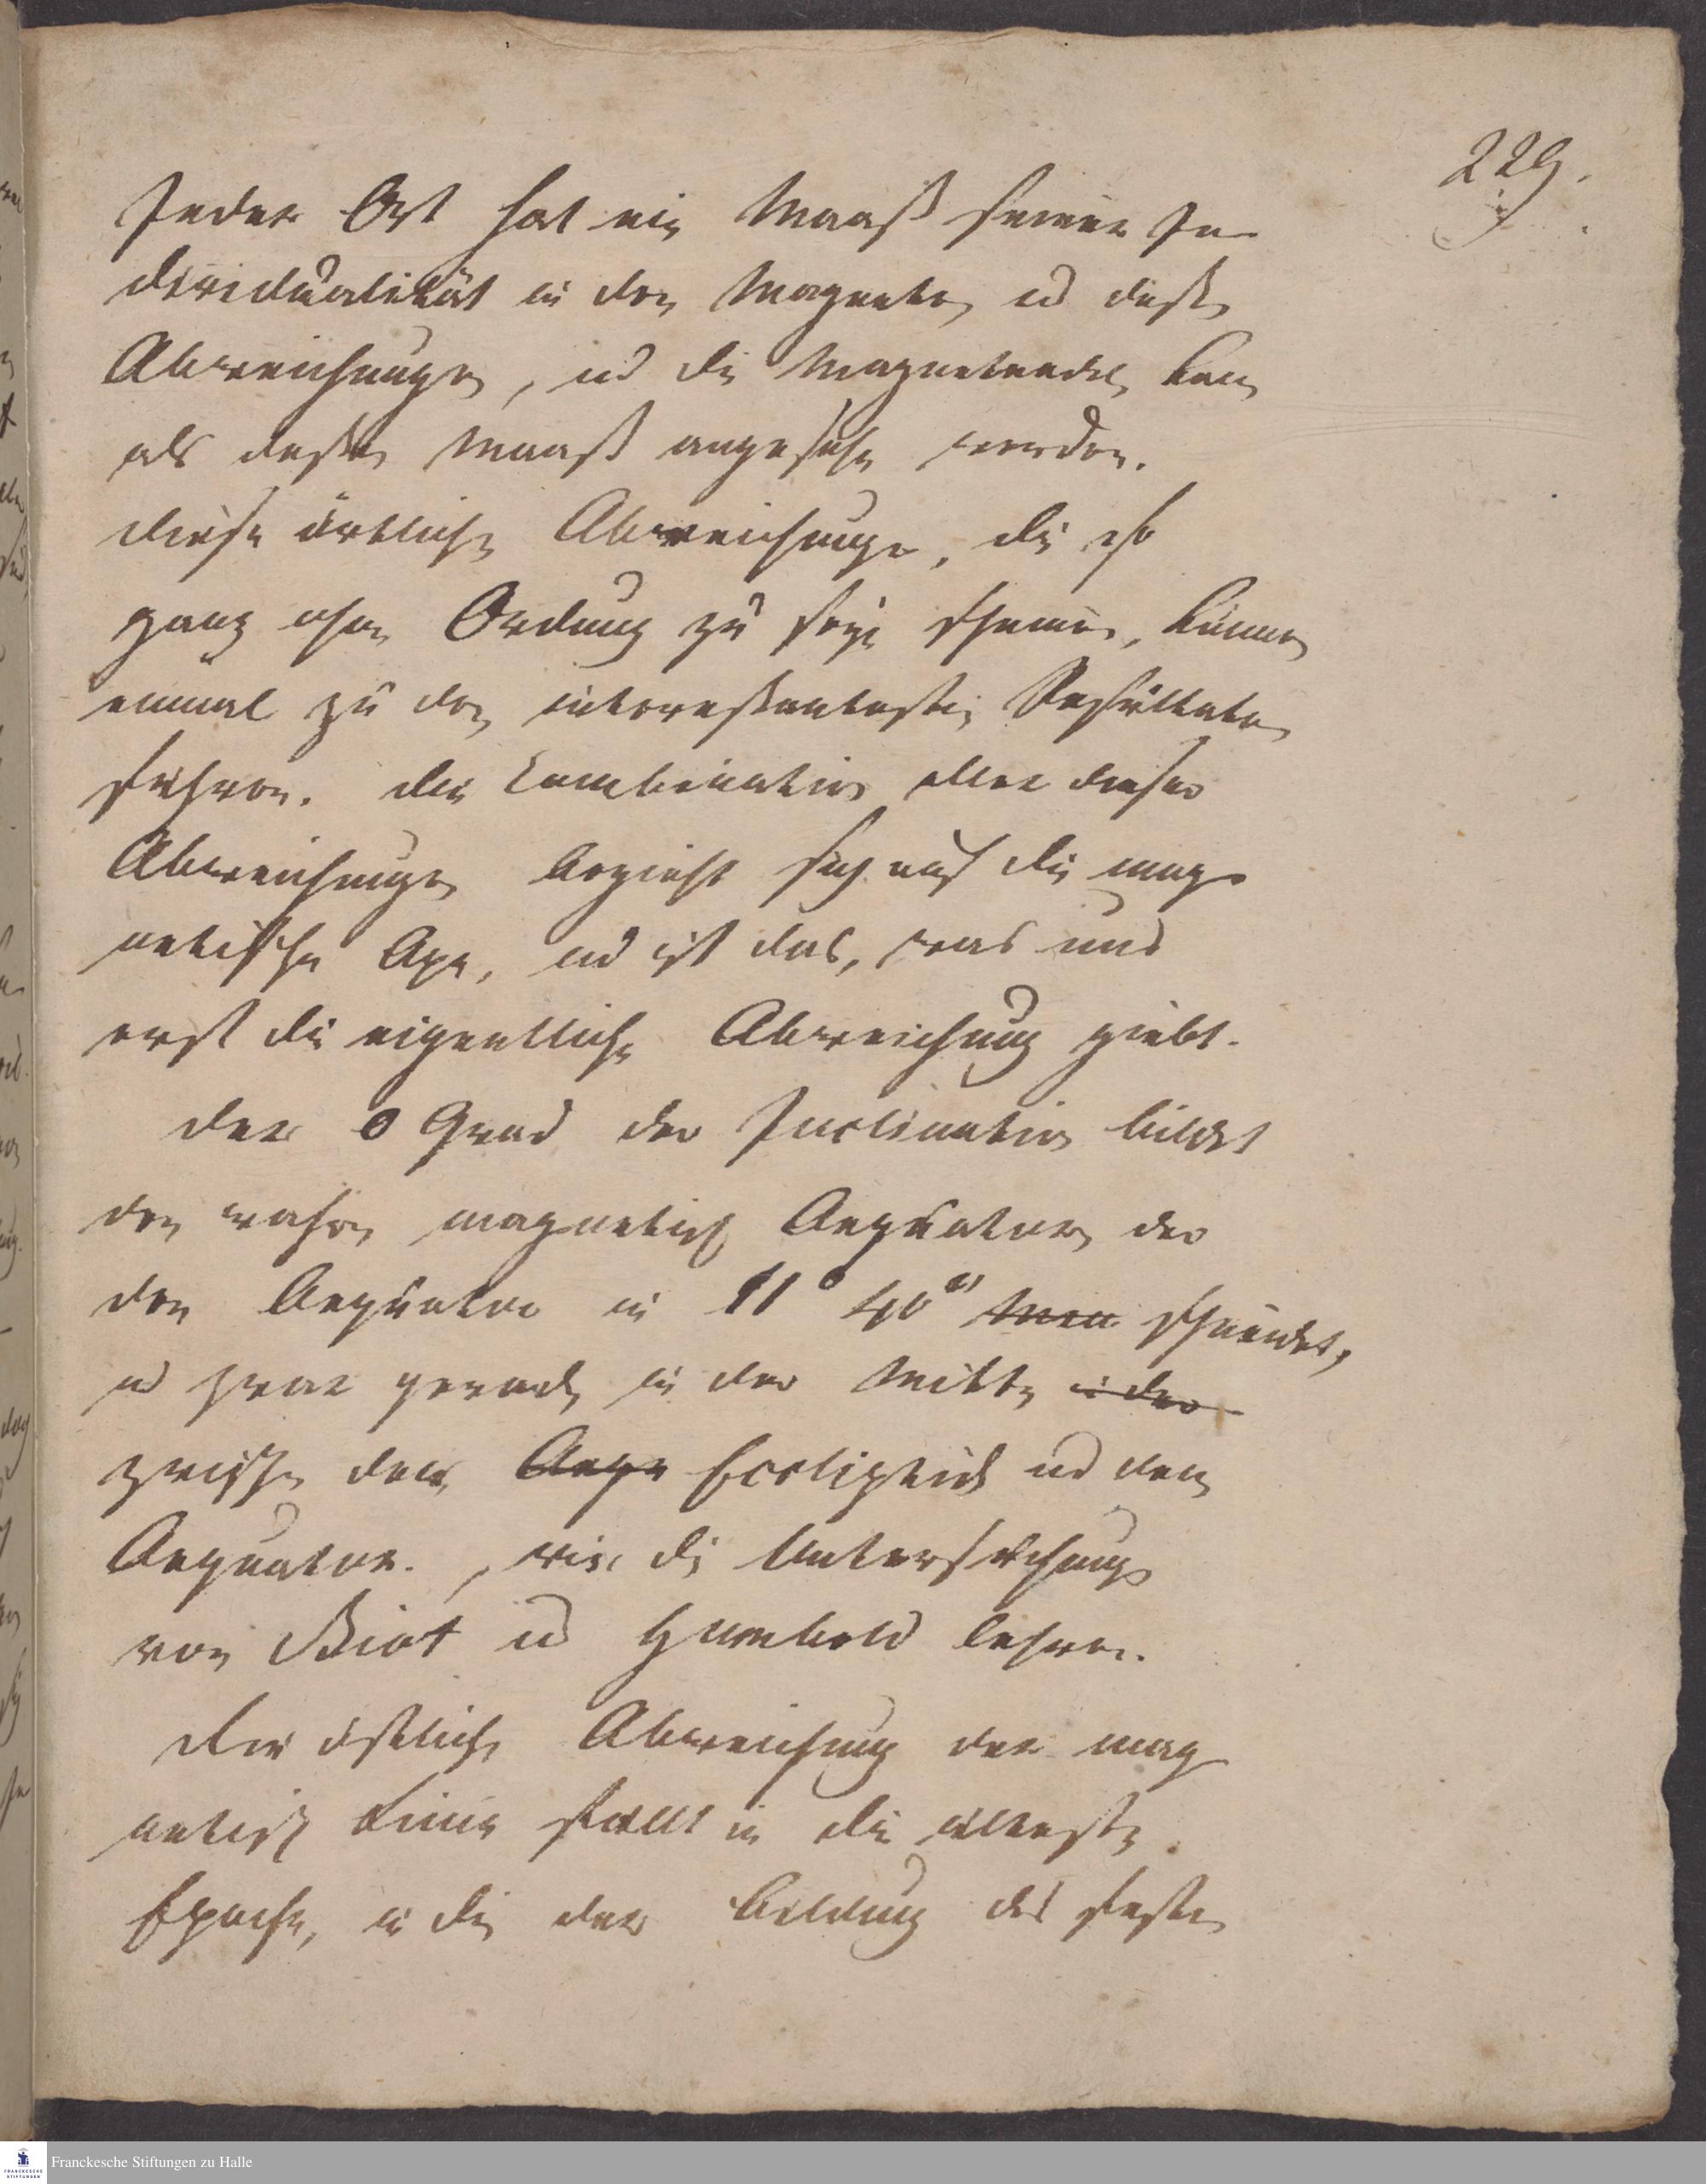 229.
Jeder Ort hat ein Maaß seiner In
dividualität in den Magneten ud deßen
Abweichungen, ud die Magnetnadel kan
als deßen Maaß angesehn werden.
diese örtlichen Abweichungen, die jetzt
ganz ohne Ordnung zu seyn scheinen, können
einmal zu den intereßantesten Resultaten
führen. die Combination aller dieser
Abweichungen bezieht sich auf die mag
netische Axe, ud ist das, was uns
erst die eigentliche Abweichung giebt.
der 0 Grad der Inclination bildet
den wahren magnetisch Aequator, der
den Aequator in 11° 40" Min schneidet,
ud zwar gerade in der Mitte in der
zwischen der Aequ Eccliptick ud dem
Aequator. , wie die Untersuchung
von Biot ud Humbold lehren.
die östliche Abweichung der mag
netisch Linie fällt in die älteste
Epoche, in die der Bildung des festen
Franckesche Stiftungen zu Halle